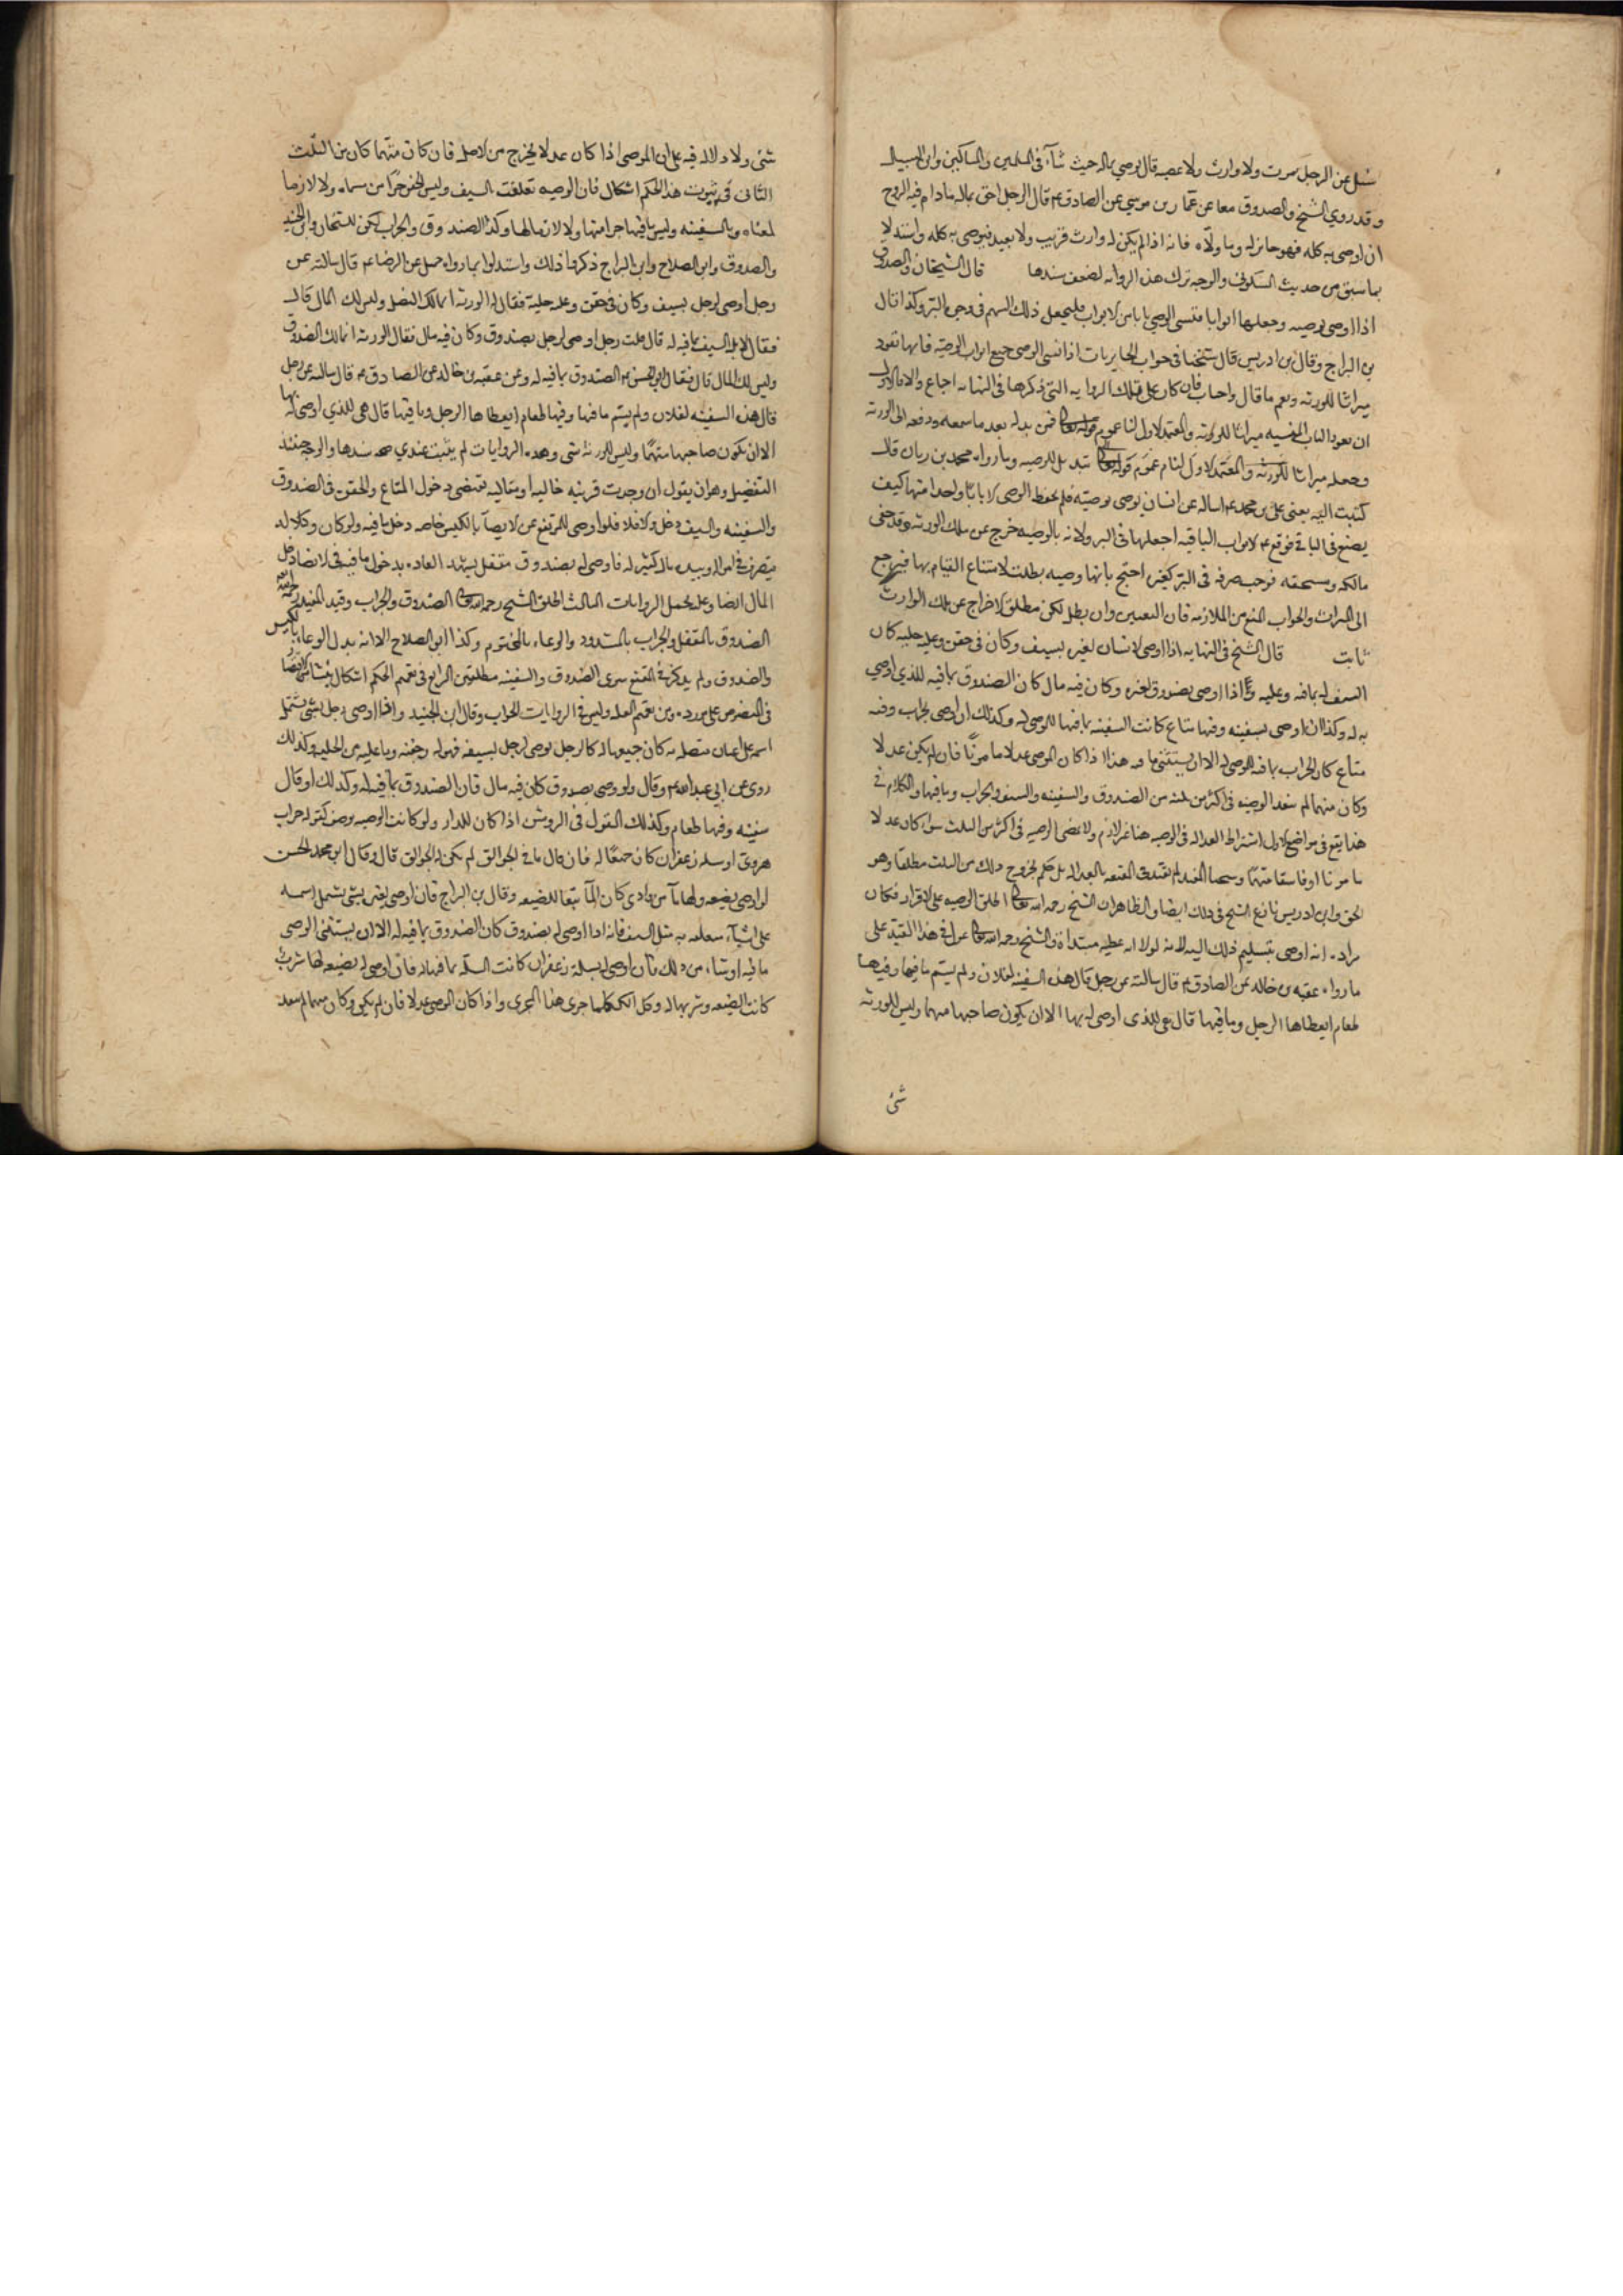 سئل عن الرجل يموت ولا وارث ولا عصبه قال يوصي بماله حيث شاء في المسلمين والمساكين وابن السبيل
وقد روي الشيخ والصدوق معا عن عمار بن موسي عن الصادق ع قال الرجل احق بماله مادام فيه الروح
ان اوصي به كله فهو جائز له وما ولاه فانه اذا لم يكن له وارث قريب ولا بعيد فيوصي به كله واستدلا
بما سبق من حديث السكوني والوجه ترك هذه الروايه لضعف سندها قال الشيخان والصدوق
اذا اوصي بوصيه وجعلها ابوابا فنسي الوصي بابا من الابواب فليجعل ذلك السهم في وجوه البر وكذا قال
بن البراج وقال بن ادريس قال شيخنا في جواب الحايريات اذا نسي الوصي جميع ابواب الوصيه فانها تعود
ميراثا للورثه ونعم ما قال واجاب فان كان على تلك الروايه التي ذكرها في النهايه اجماع والا فالاولى
ان يعود الباب المنسيه ميراثا للورثه والمعتمد الاول لنا عموم قوله تعالى فمن بدله بعد ما سمعه ودفعه الى الورثه
وجعله ميراثا للورثه والمعتمد الاول لنا عموم قوله تعالى تبديل للوصيه وما رواه محمد بن ريان قال
كتبت اليه يعني علي بن محمد ع اساله عن انسان يوصي بوصيته فلم يحفظ الوصي الا بابا واحدا منها كيف
يصنع في الباقي فوقع ع الابواب الباقيه اجعلها في البر ولانه بالوصيه خرج عن ملك الورثه وقد خفي
مالكه ومستحقه فوجب صرفه في البر كغيره احتج بانها وصيه بطلت لامتناع القيام بها فيرجع
الى الميراث والجواب المنع من الملازمه فان التعيين وان بطل لكن مطلق الاخراج عن ملك الوارث
ثابت قال الشيخ في النهايه اذا اوصي لانسان لغيره بسيف وكان في جفن وعليه حليه كان
السيف له بما فيه وعليه واذا اوصي بصندوق لغيره وكان فيه مال كان الصندوق بما فيه للذي اوصي
به له وكذا ان اوصي بسفينه وفيها متاع كانت السفينه بما فيها للموصي له وكذلك ان اوصي بجراب وفيه
متاع كان الجراب بما فيه للموصي له الا ان يستثني ما فيه هذا اذا كان الموصي عدلا مامونا فان لم يكن عدلا
وكان متهما لم تنفذ الوصيه في اكثر من ثلثه من الصندوق والسفينه والسيف والجراب وما فيها والكلام في
هذا يقع في مواضع الاول اشتراط العداله في الوصيه هنا غير لازم ولا تمضي الوصيه في اكثر من الثلث سواء كان عدلا
مامونا او فاسقا متهما وشيخنا المفيد لم يقيد في المقنعه بالعداله بل حكم بخروج ذلك من الثلث مطلقا وهو
الحق وابن ادريس نازع الشيخ في ذلك ايضا والظاهر ان الشيخ رحمه الله تعالى اطلق الوصيه على الاقرار فكان
مراده انه اوصي بتسليم ذلك اليه لانه لولا انه عطيه مبتداة والشيخ رحمه الله تعالى عول في هذا القيد على
ما رواه عقبه بن خالد عن الصادق ع قال سالته عن رجل قال هذه السفينه لفلان ولم يسم ما فيها وفيها
طعام ايعطاها الرجل وما فيها قال هي للذي اوصي له بها الا ان يكون صاحبها متهما وليس للورثه
شئ
شئ ولا دلاله فيه على ان الموصي اذا كان عدلا يخرج من الاصل فان كان متهما كان من الثلث
الثاني في ثبوت هذا الحكم اشكال فان الوصيه تعلقت بالسيف وليس الجفن جزءا من مسماه ولا لازما
لمعناه وبالسفينه وليس ما فيها جزءا منها ولا لازما لها وكذا الصندوق والجراب لكن الشيخان وابن الجنيد
والصدوق وابو الصلاح وابن البراج ذكروا ذلك واستدلوا بما رواه جميل عن الرضا ع قال سالته عن
رجل اوصي لرجل بسيف وكان في جفن وعليه حلية فقال له الورثه انما لك النصل وليس لك المال قال
فقال لا بل السيف بما فيه له قال قلت رجل اوصى لرجل بصندوق وكان فيه مال فقال الورثه انما لك الصندوق
وليس لك المال قال فقال ابو الحسن ع الصندوق بما فيه له وعن عقبه بن خالد عن الصادق ع قال سالته عن رجل
قال هذه السفينه لفلان ولم يسم ما فيها وفيها طعام ايعطاها الرجل وما فيها قال هي للذي اوصى له بها
الا ان يكون صاحبها متهما وليس للورثة شئ وهذه الروايات لم يثبت عندي صحه سندها والوجه حينئذ
التفصيل وهو ان يقول ان وجدت قرينه حاليه او مقاليه تقتضي دخول المتاع والجفن في الصندوق
والسفينه والسيف دخل والا فلا فلو اوصى للمرتفع عن الايصاء بالكيس خاصه دخل ما فيه ولو كان وكلا له
يتصرف في امواله وبيده مال كثير له فاوصى له بصندوق مقفل يشهد العاده بدخول ما فيه في الايصا دخل
المال ايضا وعليه يحمل الروايات الثالث اطلق الشيخ رحمه الله تعالى الصندوق والجراب وقيد المفيد رحمه الله
الصندوق بالمقفل والجراب بالمشدود والوعاء بالمختوم وكذا ابو الصلاح الا انه بدل الوعاء بالكيس
والصدوق لم يذكر في المقنع سوى الصندوق والسفينه مطلقين الرابع في تعميم الحكم اشكال ينشا من الاقتصار
في المنصوص على مورده ومن تعميم العله وليس في الروايات الجراب وقال ابن الجنيد واذا اوصى رجل بشئ يشتمل
اسمه على اعيان متصله به كان جميعها له كالرجل يوصى لرجل بسيفه فهو له وجفنه وما عليه من الحليه وكذلك
روي عن ابي عبدالله ع وقال ولو وصى بصندوق كان فيه مال فان الصندوق بما فيه له وكذلك لو قال
سفينه وفيها طعام وكذلك القول في الروشن اذا كان للدار ولو كانت الوصيه بوصف كقوله جراب
هروي او سلة زعفران كان جميعا له فان قال ما في الجوالق لم يكن له الجوالق قال وقال ابو محمد الحسن
لو اوصى بضيعه ولها ماء من وادي كان الماء تبعا للضيعه وقال بن البراج فان اوصى لغيره بشئ يشمل اسمه
على اشياء متعلقه به مثل السيف فانه اذا اوصى له بصندوق كان الصندوق بما فيه له الا ان يستثني الموصي
ما فيه او شيئا من ذلك فان اوصى له بسلة زعفران كانت السله بما فيها له فان اوصى له بضيعه لها شرب
كانت الضيعه وشربها له وكل ذلك كلما جرى هذا المجرى واذا كان الموصي عدلا فان لم يكن وكان متهما لم تنفذ